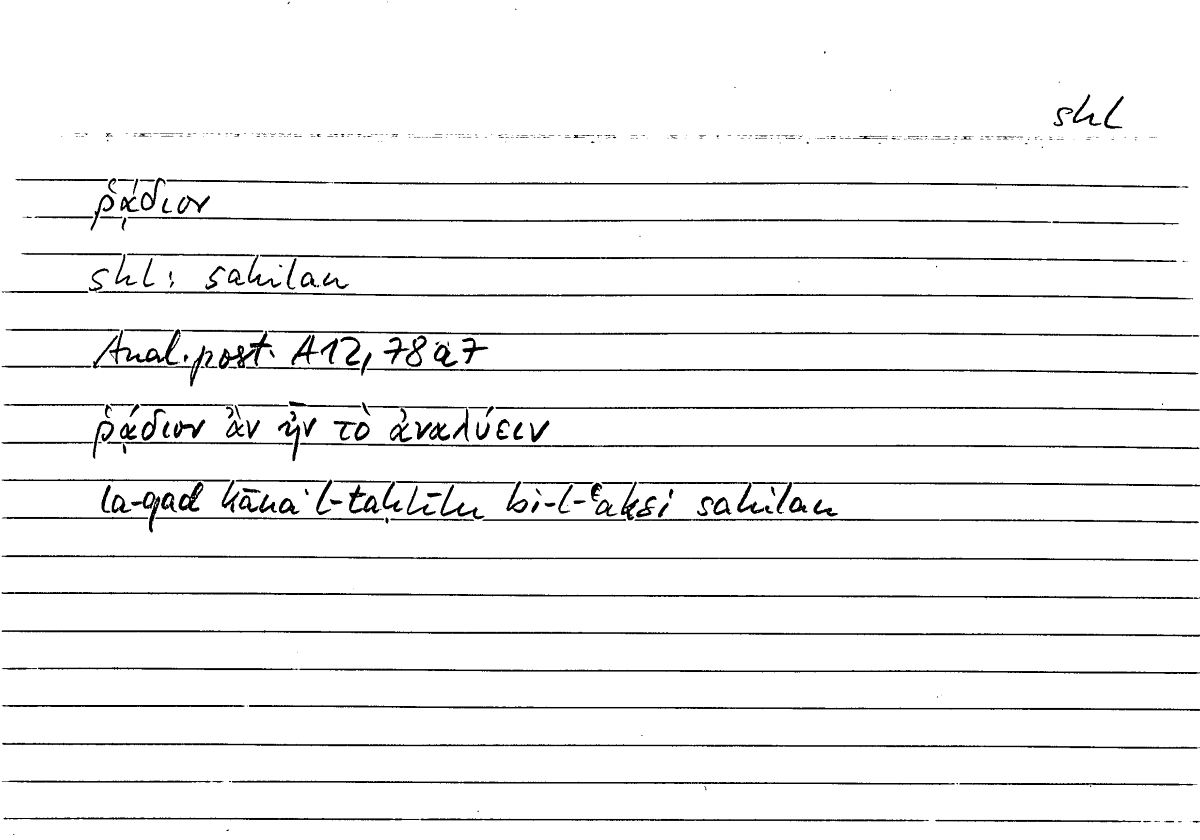 shl
ῥᾴδιον
shl: sahilan
Anal. post. A12, 78a7
ῥᾴδιον ἂν ἦν τὸ ἀναλύειν
la-qad kāna ’l-taḥlīlu bi-l-ʿaksi sahilan